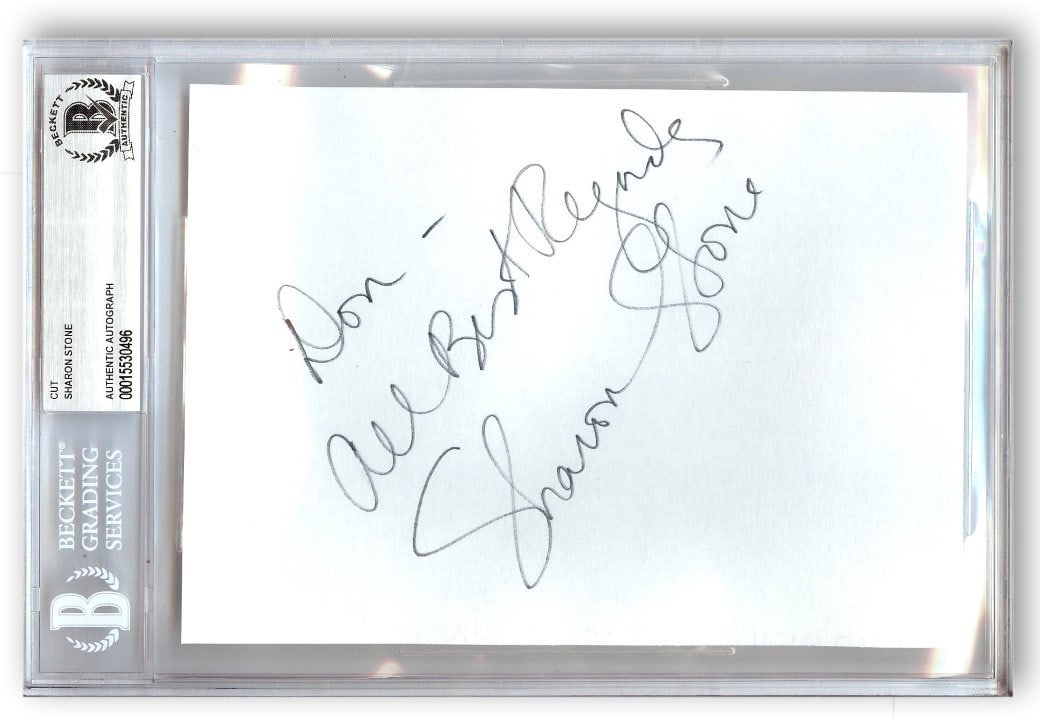 BECKETT
AUTHENTIC
CUT
SHARON STONE
AUTHENTIC AUTOGRAPH
00015530496
BECKETT®
GRADING
SERVICES
Don -
All Best Regards
Sharon Stone